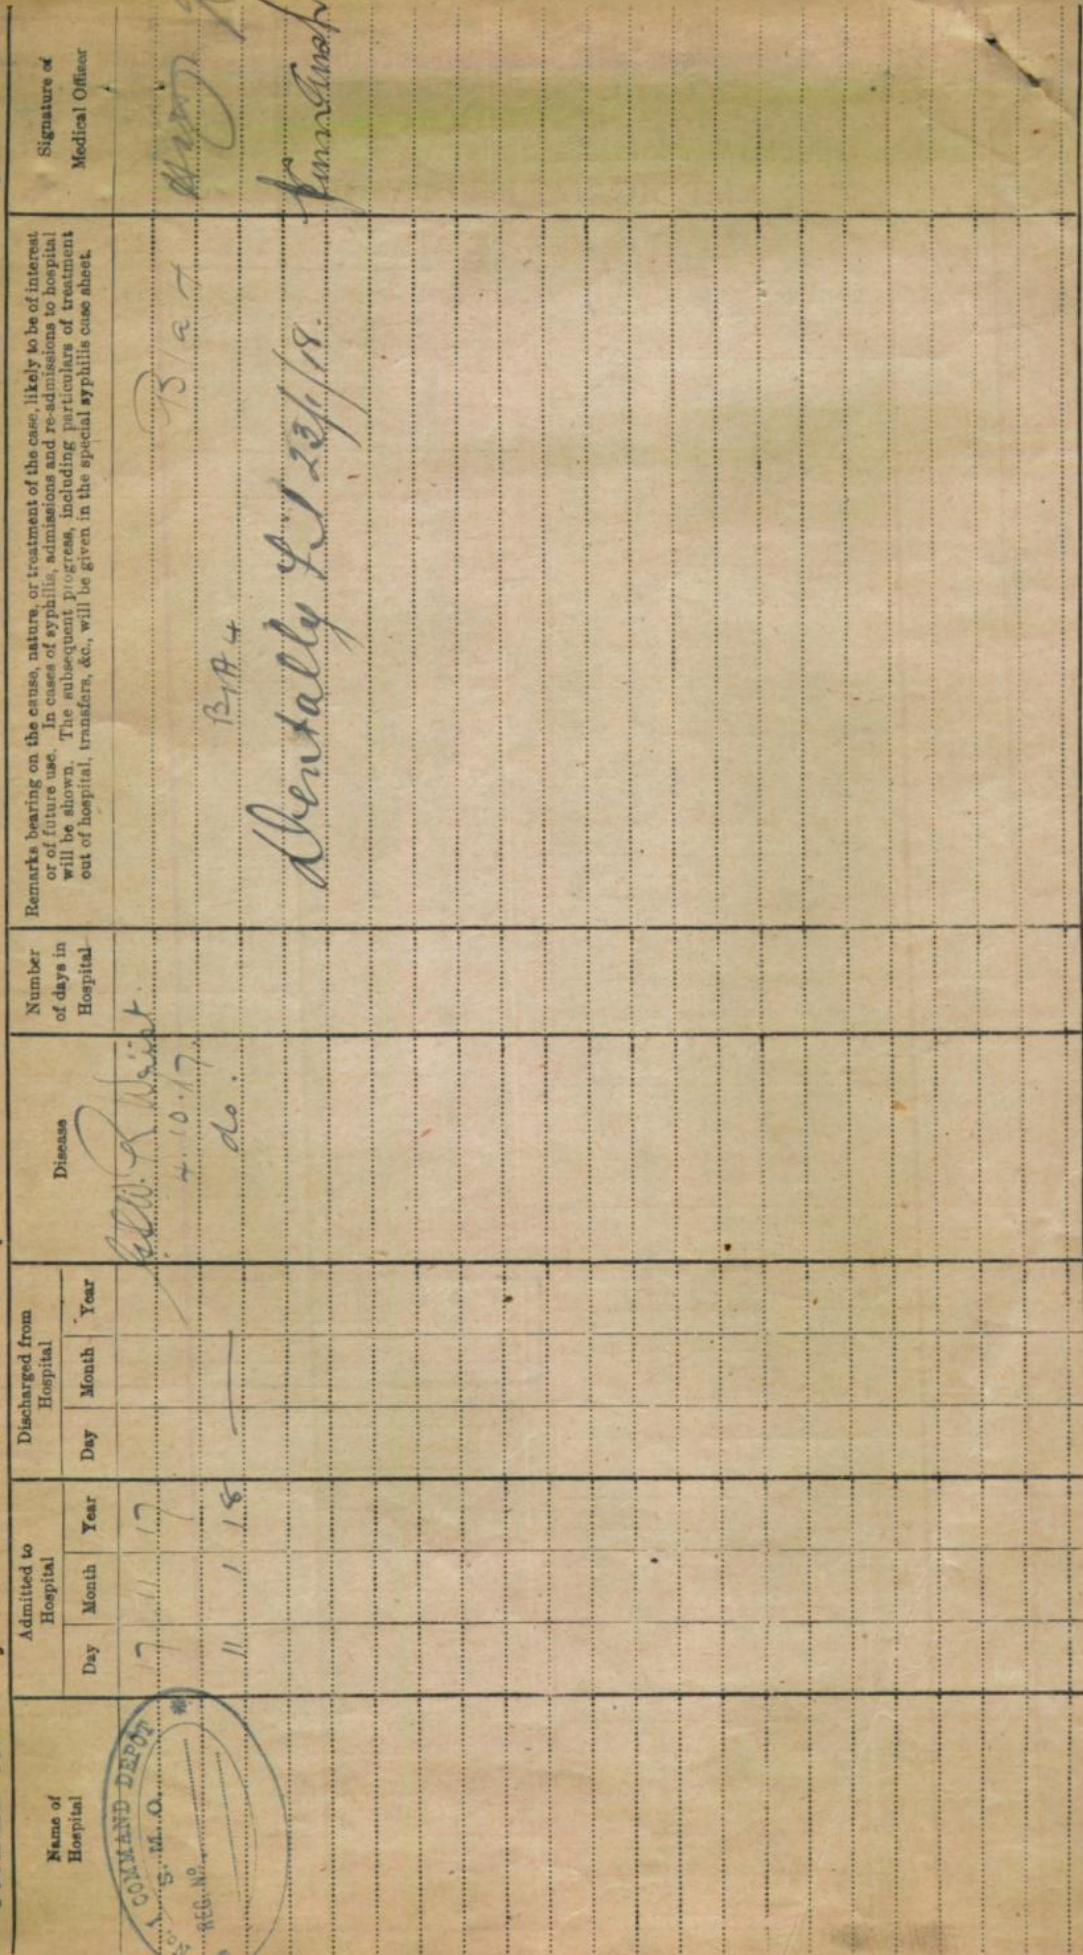 Name of
Hospital
Admitted to
Hospital
Day Month Year
Discharged from
Hospital
Day Month Year
Disease
Number
of days in
Hospital
Remarks bearing on the cause, nature, or treatment of the case, likely to be of interest
or of future use. In cases of syphilis, admissions and re-admissions to hospital
will be shown. The subsequent progress, including particulars of treatment
out of hospital, transfers, &c., will be given in the special syphilis case sheet.
Signature of
Medical Officer
No. 1 COMMAND DEPOT
S. M. O.
REG. No
17 11 17
Wrist.
4.10.17.
B1a
11 1 18
do.
Dentally 23/1/18.